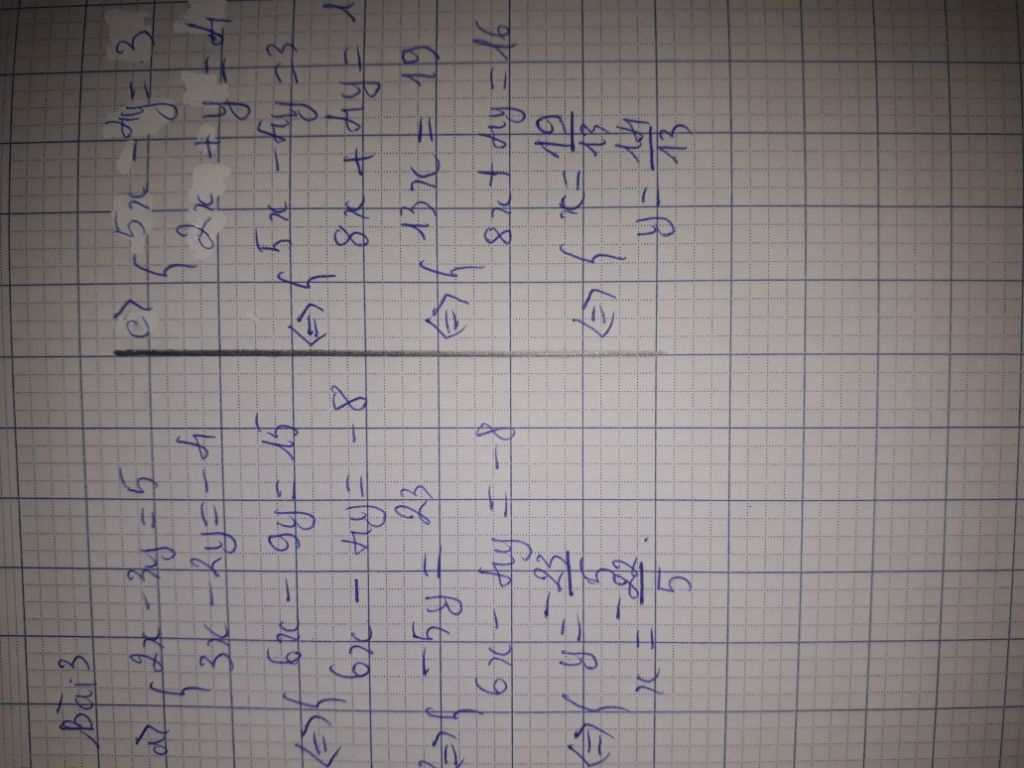 Bài 3
a) { 2x - 3y = 5
3x - 2y = -4
<=> { 6x - 9y = 15
6x - 4y = -8
<=> { -5y = 23
6x - 4y = -8
<=> { y = -23/5
x = -22/5.
c) { 5x - 4y = 3
2x + y = 4
<=> { 5x - 4y = 3
8x + 4y = 1
<=> { 13x = 19
8x + 4y = 16
<=> { x = 19/13
y = 14/13